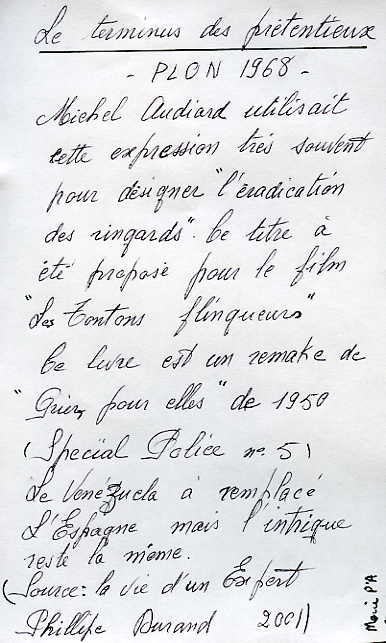 Le terminus des prétentieux
- PLON 1968 -
Michel Audiard utilisait
cette expression très souvent
pour désigner "l'éradication
des ringards". Ce titre à
été proposé pour le film
"Les Tontons flingueurs"
Ce livre est un remake de
"Grier, pour elles" de 1950
(Spécial Police no. 5)
Le Vénézuela à remplacé
L'Espagne mais l'intrique
reste la même.
(Source: la vie d'un Expert
Phillipe Durand 2001)
Merci P'A